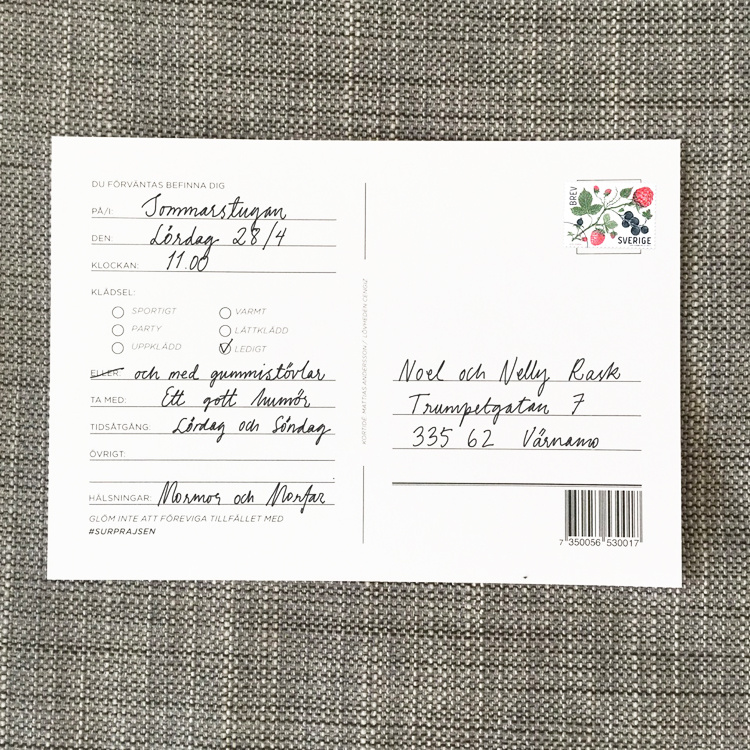 DU FÖRVÄNTAS BEFINNA DIG
PÅ/I: Sommarstugan
DEN: Lördag 28/4
KLOCKAN: 11.00
KLÄDSEL:
SPORTIGT VARMT
PARTY LÄTTKLÄDD
UPPKLÄDD LEDIGT
ELLER: och med gummistövlar
TA MED: Ett gott humör
TIDSÅTGÅNG: Lördag och Söndag
ÖVRIGT:
HÄLSNINGAR: Mormor och Morfar
GLÖM INTE ATT FÖREVIGA TILLFÄLLET MED
#SURPRAJSEN
KORTIDÉ: MATTIAS ANDERSSON / LÖVHEDEN
BREV
SVERIGE
Noel och Nelly Rask
Trumpetgatan 7
335 62 Värnamo
7 350056 530017